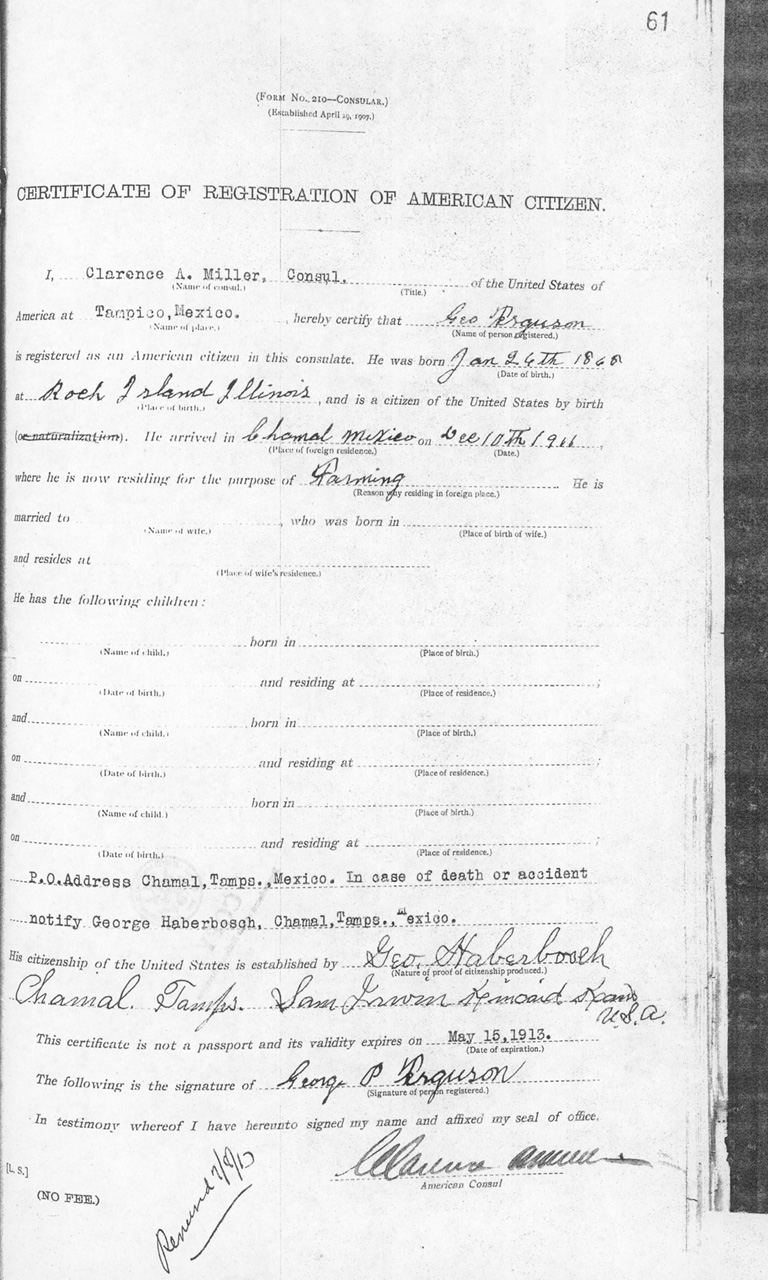 61
(FORM NO. 210—CONSULAR.)
(Established April 29, 1907.)
CERTIFICATE OF REGISTRATION OF AMERICAN CITIZEN.
I, Clarence A. Miller, Consul. of the United States of
(Name of consul.) (Title.)
America at Tampico, Mexico. , hereby certify that Geo Ferguson
(Name of place.) (Name of person registered.)
is registered as an American citizen in this consulate. He was born Jan 26th 1860
(Date of birth.)
at Rock Island Illinois , and is a citizen of the United States by birth
(Place of birth.)
(or naturalization). He arrived in Chamal Mexico on Dec 10th 1911 ,
(Place of foreign residence.) (Date.)
where he is now residing for the purpose of Farming . He is
(Reason why residing in foreign place.)
married to , who was born in
(Name of wife.) (Place of birth of wife.)
and resides at
(Place of wife's residence.)
He has the following children:
born in
(Name of child.) (Place of birth.)
on and residing at ;
(Date of birth.) (Place of residence.)
and born in
(Name of child.) (Place of birth.)
on and residing at ;
(Date of birth.) (Place of residence.)
and born in
(Name of child.) (Place of birth.)
on and residing at ;
(Date of birth.) (Place of residence.)
P.O.Address Chamal,Tamps.,Mexico. In case of death or accident
notify George Haberbosch, Chamal,Tamps.,Mexico.
His citizenship of the United States is established by Geo. Haberbosch
(Nature of proof of citizenship produced.)
Chamal. Tamps. Sam Irwin Kincaid Kans
U.S.A.
This certificate is not a passport and its validity expires on May 15,1913.
(Date of expiration.)
The following is the signature of George P Ferguson
(Signature of person registered.)
In testimony whereof I have hereunto signed my name and affixed my seal of office.
Clarence A Miller
American Consul
[L. S.]
(NO FEE.)
Renewed